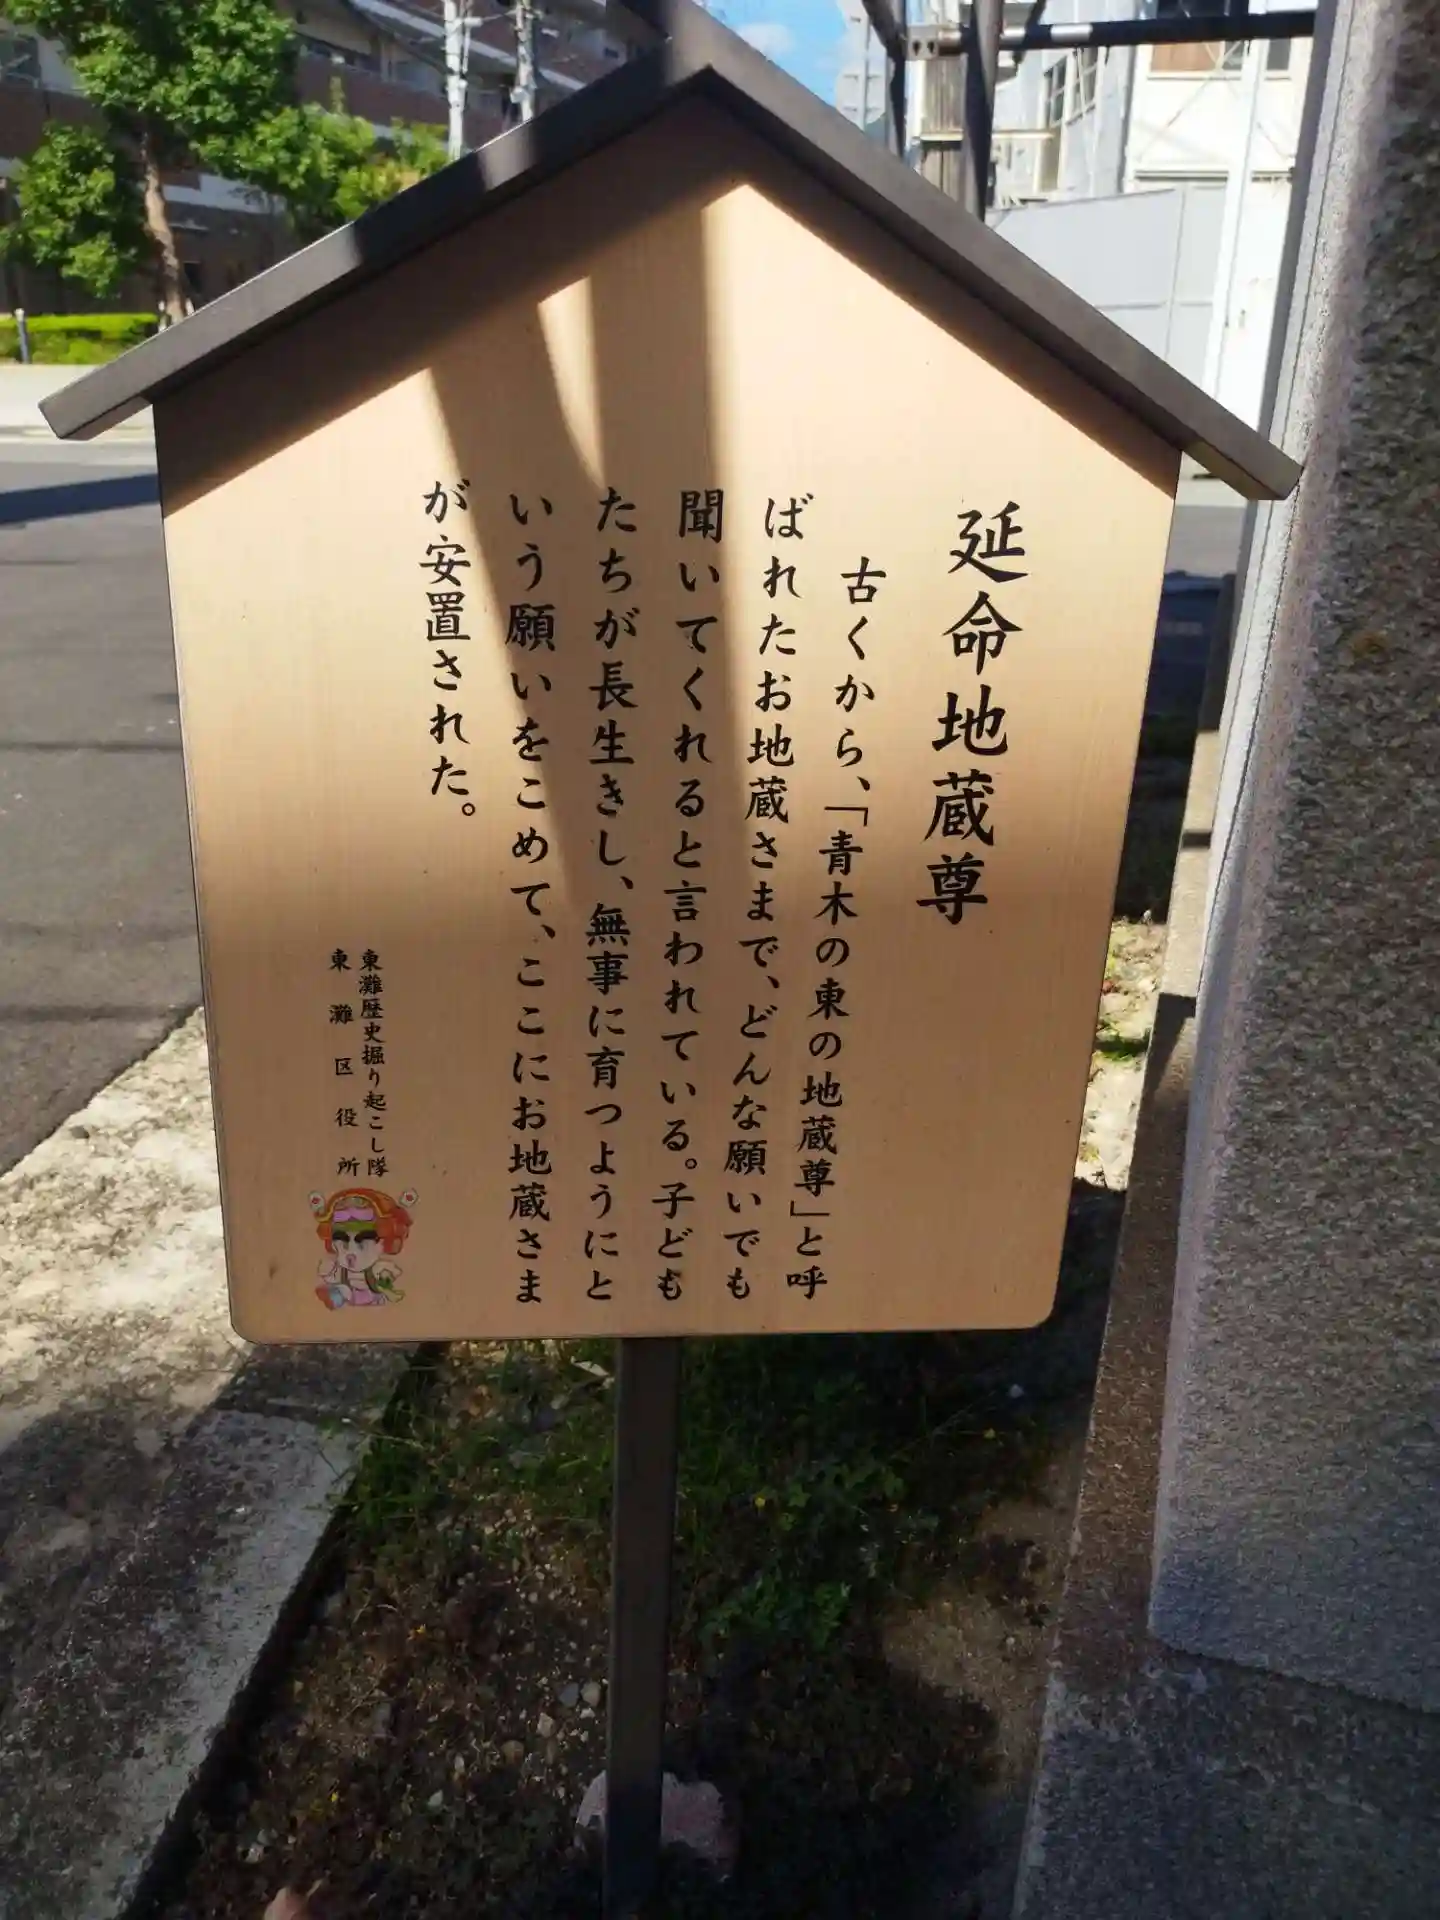 延命地蔵尊
古くから、「青木の東の地蔵尊」と呼
ばれたお地蔵さまで、どんな願いでも
聞いてくれると言われている。子ども
たちが長生きし、無事に育つようにと
いう願いをこめて、ここにお地蔵さま
が安置された。
東灘歴史掘り起こし隊
東灘区役所